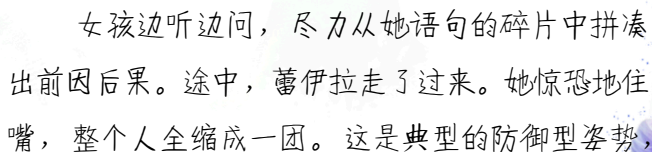 女孩边听边问，尽力从她语句的碎片中拼凑
出前因后果。途中，蕾伊拉走了过来。她惊恐地住
嘴，整个人全缩成一团。这是典型的防御型姿势，